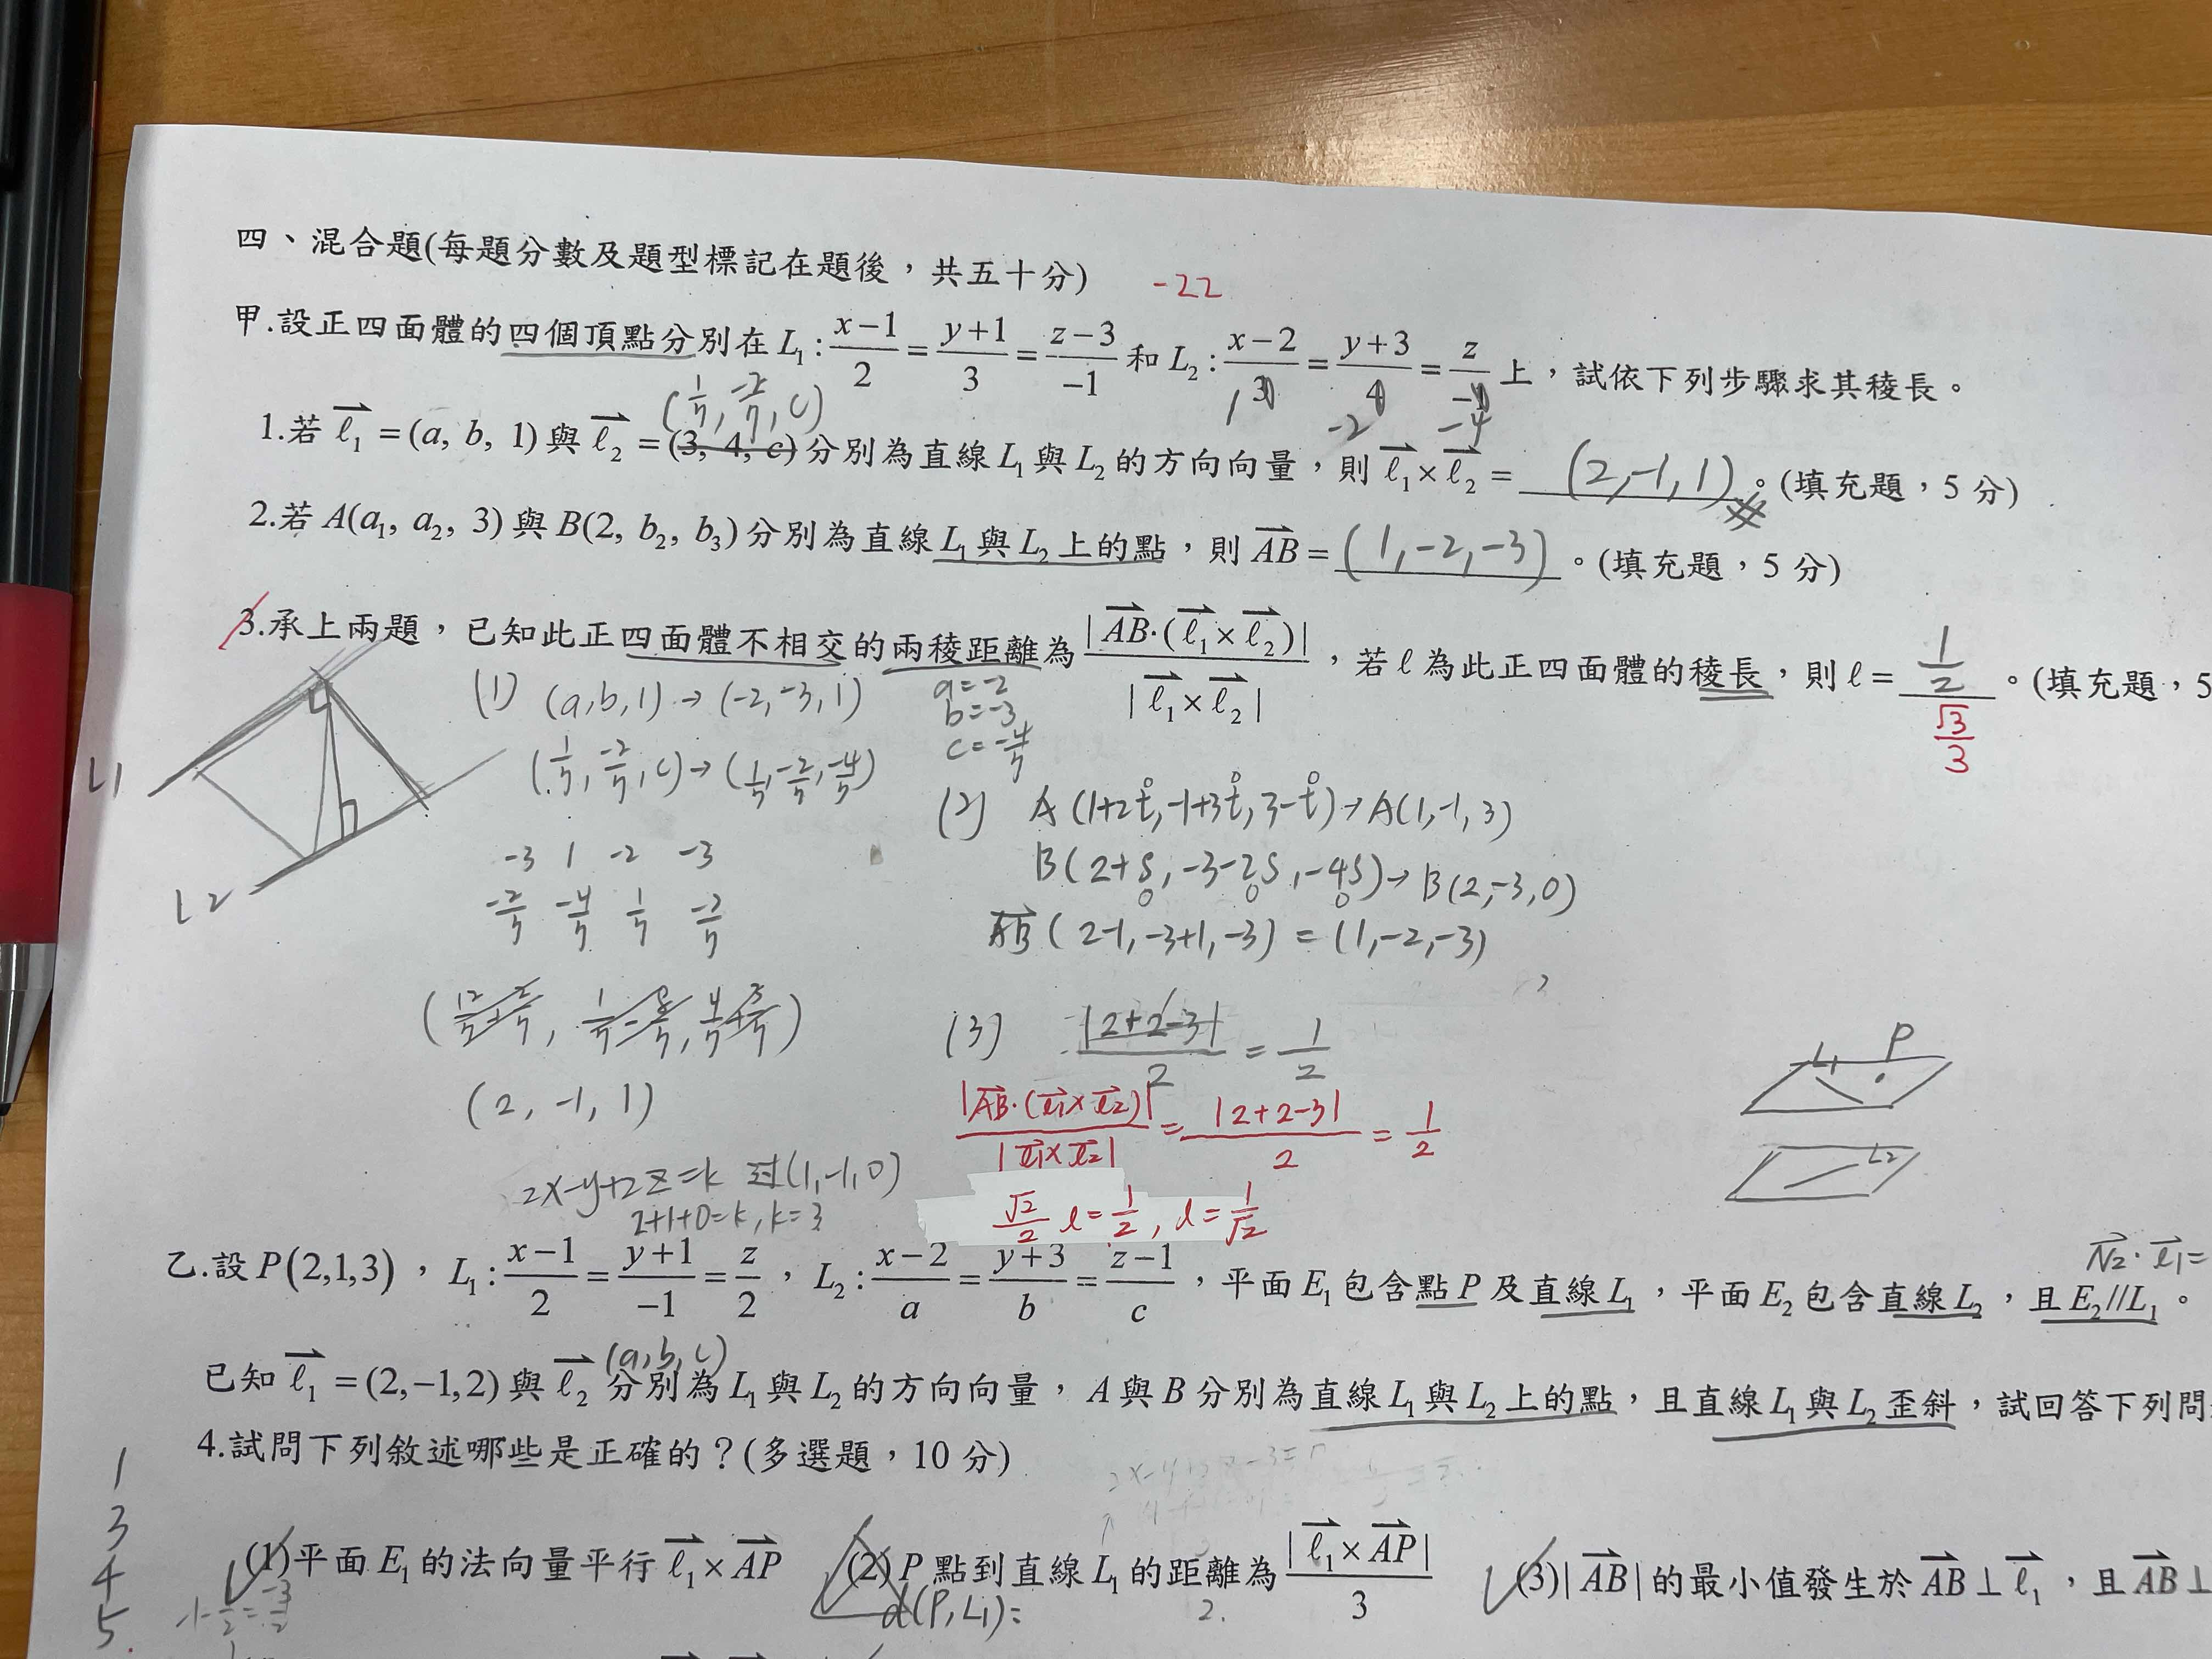 四、混合題(每題分數及題型標記在題後，共五十分) -22
甲.設正四面體的四個頂點分別在 L₁: (x−1)/2 = (y+1)/3 = (z−3)/−1 和 L₂: (x−2)/ 1 = (y+3)/ -2 = z/ -4 上，試依下列步驟求其稜長。
(1/7, -2/7, c)
1.若 ℓ₁ = (a, b, 1) 與 ℓ₂ = (3, 4, c) 分別為直線 L₁ 與 L₂ 的方向向量，則 ℓ₁ × ℓ₂ = (2,-1,1) 。(填充題，5 分)
2.若 A(a₁, a₂, 3) 與 B(2, b₂, b₃) 分別為直線 L₁ 與 L₂ 上的點，則 AB = (1,-2,-3) 。(填充題，5 分)
3.承上兩題，已知此正四面體不相交的兩稜距離為 |AB·(ℓ₁×ℓ₂)| / |ℓ₁×ℓ₂| ，若 ℓ 為此正四面體的稜長，則 ℓ = 1/2 。(填充題，5
√3/3
L1
L2
(1) (a,b,1)→(-2,-3,1)
a=-2
b=-3
c=-4/7
(1/7, -2/7, c)→(1/7, -2/7, -4/7)
-3 1 -2 -3
-2/7 -4/7 1/7 -2/7
(2,-1,1)
(2) A(1+2t,-1+3t,3-t)→A(1,-1,3)
B(2+s,-3-2s,-4s)→B(2,-3,0)
AB(2-1,-3+1,-3)=(1,-2,-3)
(3) |2+2-3|/2 = 1/2
|AB·(ℓ1×ℓ2)|/|ℓ1×ℓ2| = |2+2-3|/2 = 1/2
√2/2 ℓ=1/2, ℓ=1/√2
L1 P
L2
2x-y+2z=k 过(1,-1,0)
2+1+0=k, k=3
N2·ℓ1=
乙.設 P(2,1,3)，L₁: (x−1)/2 = (y+1)/−1 = z/2，L₂: (x−2)/a = (y+3)/b = (z−1)/c，平面 E₁ 包含點 P 及直線 L₁，平面 E₂ 包含直線 L₂，且 E₂//L₁。
(a,b,c)
已知 ℓ₁ = (2,−1,2) 與 ℓ₂ 分別為 L₁ 與 L₂ 的方向向量，A 與 B 分別為直線 L₁ 與 L₂ 上的點，且直線 L₁ 與 L₂ 歪斜，試回答下列問
4.試問下列敘述哪些是正確的？(多選題，10 分)
1
3
4
5
(1)平面 E₁ 的法向量平行 ℓ₁ × AP (2) P 點到直線 L₁ 的距離為 |ℓ₁ × AP| / 3 (3)|AB| 的最小值發生於 AB ⊥ ℓ₁，且 AB ⊥
d(P,L1)=
2.